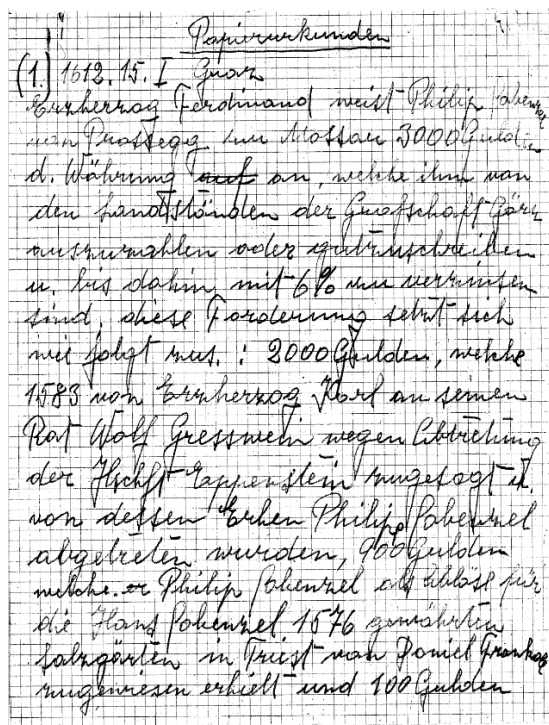 Papierurkunden
(1.) 1612. 15. I Graz
Erzherzog Ferdinand weist Philip Cobenzel
von Prossegg zu Mossau 3000 Gulden
d. Währung auf an, welche ihm von
den Landständen der Grafschaft Görz
auszuzahlen oder gutzuschreiben
u. bis dahin mit 6% zu verzinsen
sind, diese Forderung setzt sich
wie folgt zus. : 2000 Gulden, welche
1583 von Erzherzog Karl an seinen
Rat Wolf Gresswein wegen Abtretung
der Hschft Eppenstein zugesagt u.
von dessen Erben Philipp Cobenzel
abgetreten wurden, 900 Gulden
welche er Philip Cobenzel als Ablöse für
die Hans Cobenzel 1576 gewährten
Salzgärten in Triest von Daniel
zugewiesen erhielt und 100 Gulden